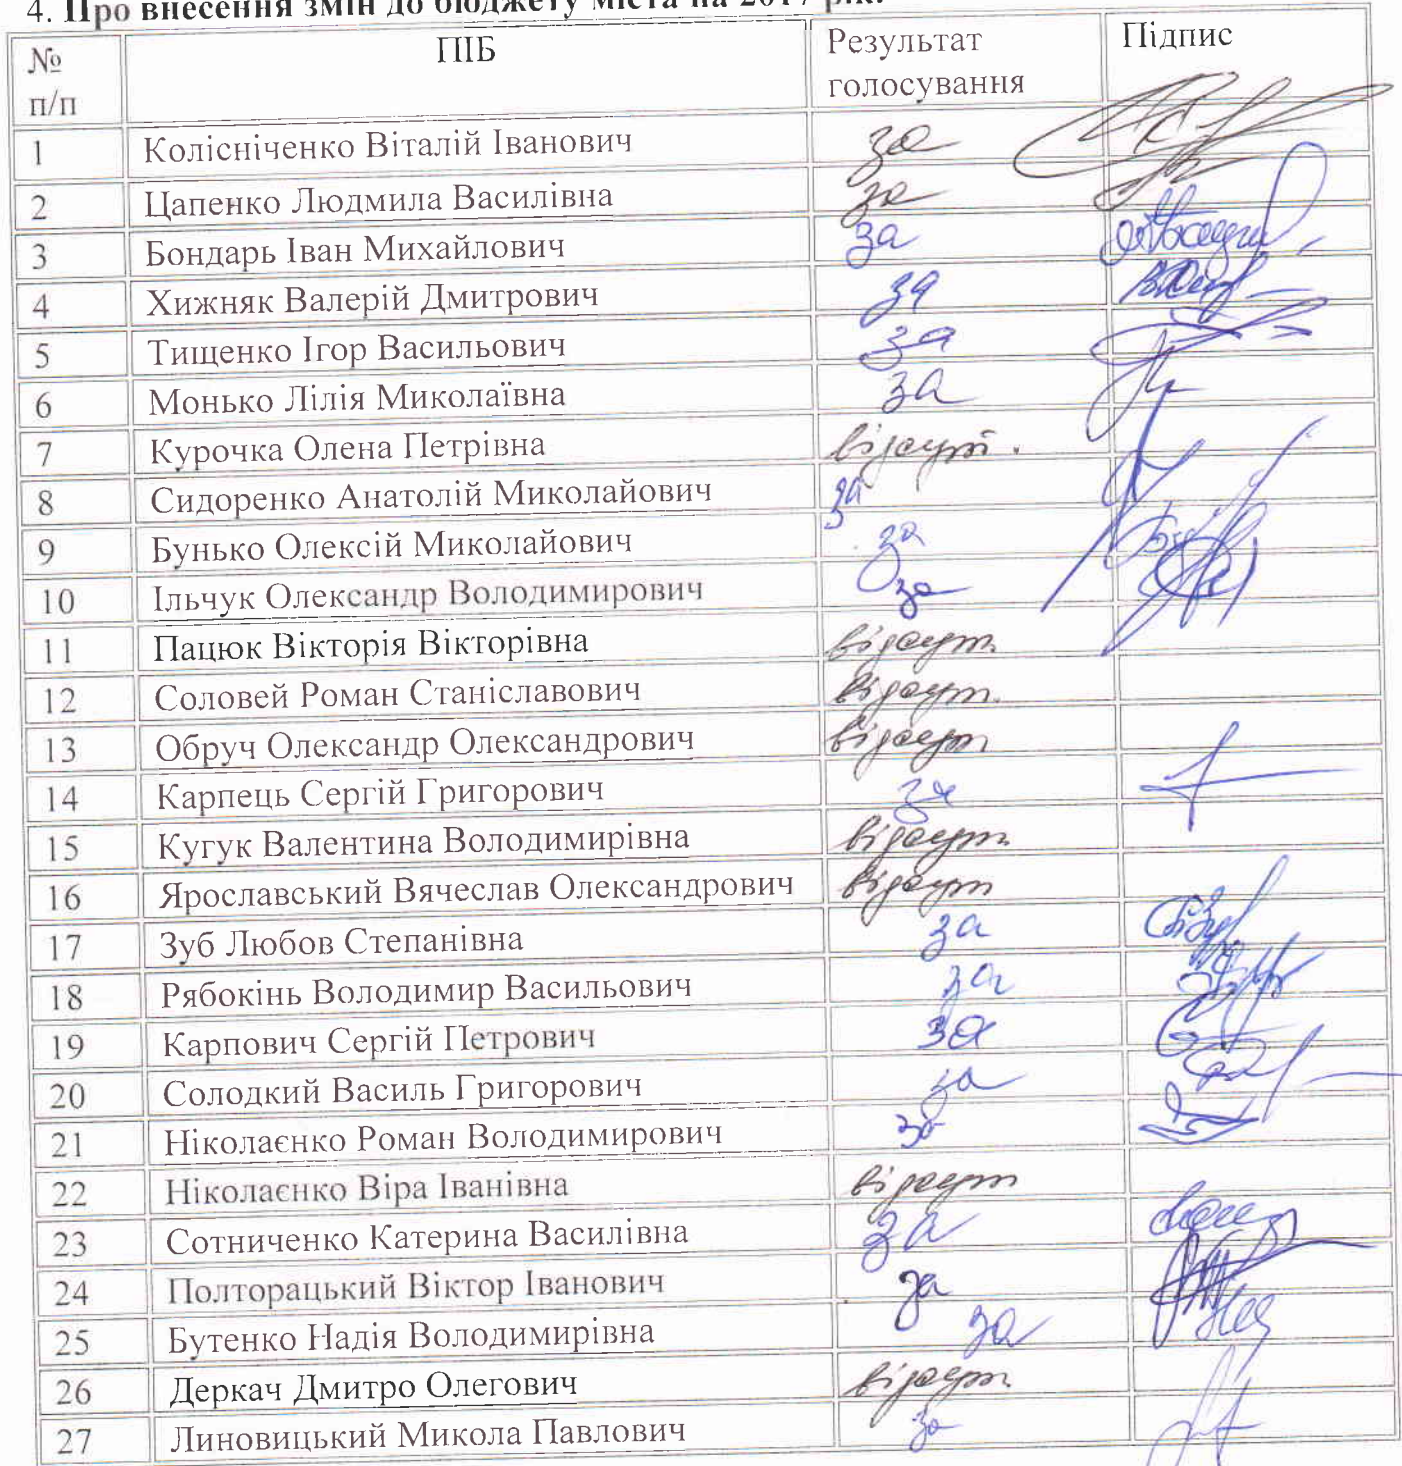 4. Про внесення змін до бюджету міста на 2017 рік.
№ п/п ПІБ Результат голосування Підпис
1 Колісніченко Віталій Іванович за
2 Цапенко Людмила Василівна за
3 Бондарь Іван Михайлович за
4 Хижняк Валерій Дмитрович за
5 Тищенко Ігор Васильович за
6 Монько Лілія Миколаївна за
7 Курочка Олена Петрівна відсутн.
8 Сидоренко Анатолій Миколайович за
9 Бунько Олексій Миколайович за
10 Ільчук Олександр Володимирович за
11 Пацюк Вікторія Вікторівна відсутн.
12 Соловей Роман Станіславович відсутн.
13 Обруч Олександр Олександрович відсутн
14 Карпець Сергій Григорович за
15 Кугук Валентина Володимирівна відсутн
16 Ярославський Вячеслав Олександрович відсутн
17 Зуб Любов Степанівна за
18 Рябокінь Володимир Васильович за
19 Карпович Сергій Петрович за
20 Солодкий Василь Григорович за
21 Ніколаєнко Роман Володимирович за
22 Ніколаєнко Віра Іванівна відсутн
23 Сотниченко Катерина Василівна за
24 Полторацький Віктор Іванович за
25 Бутенко Надія Володимирівна за
26 Деркач Дмитро Олегович відсутн
27 Линовицький Микола Павлович за